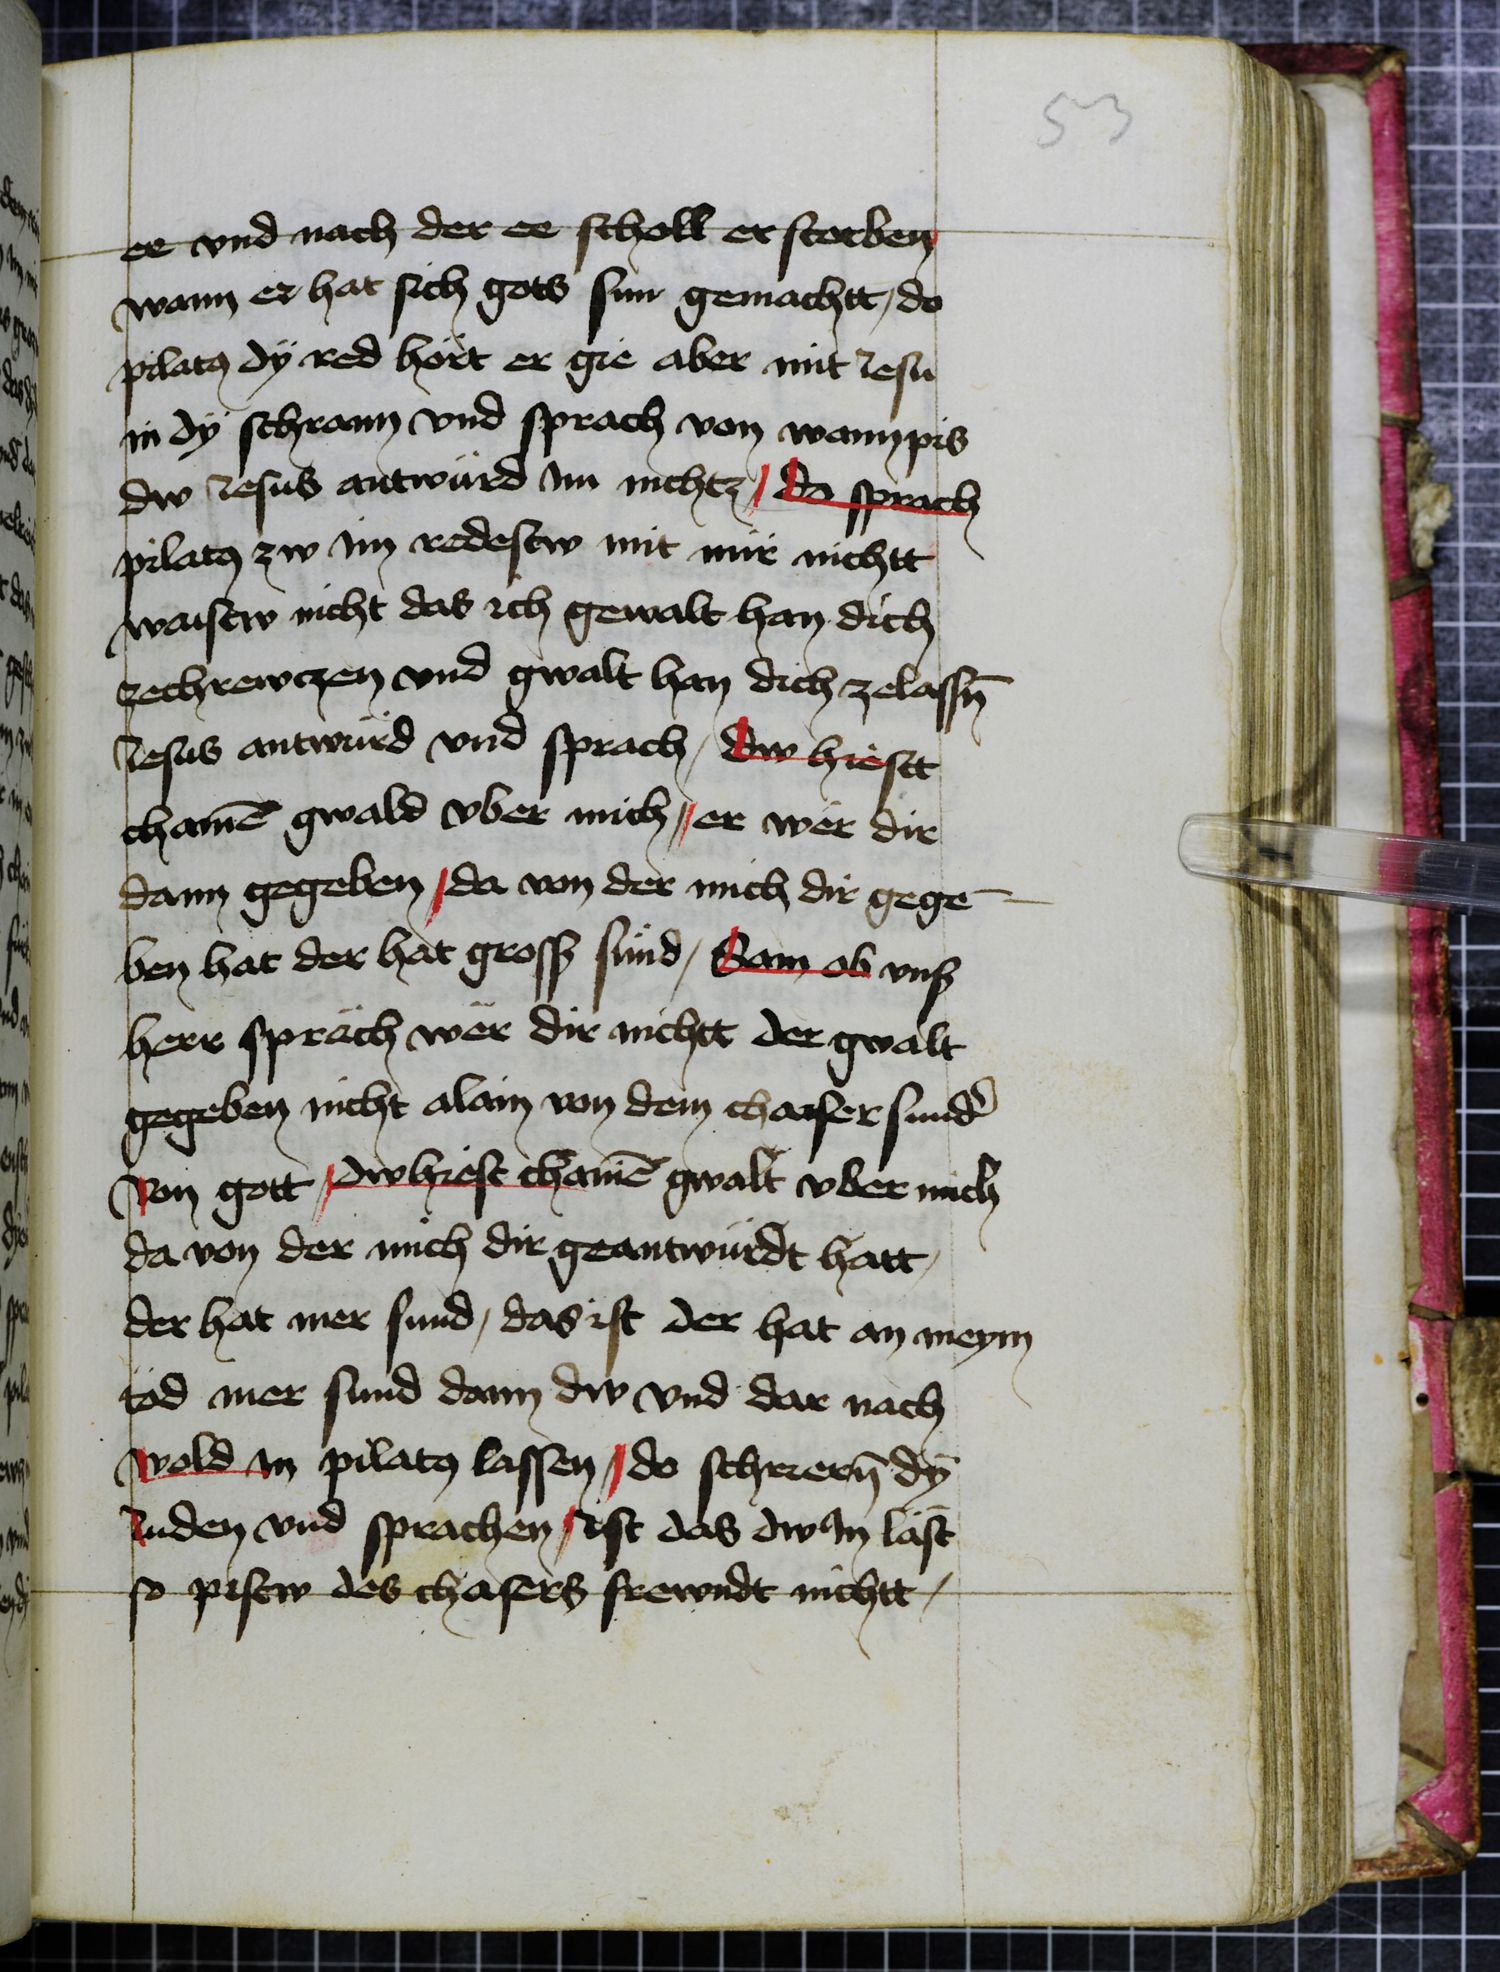 53
ee vnd nach der ee scholl er sterben
wann er hat sich gots sun gemachtt / do
pilatꝰ dÿ red hört er gie aber mit Jesu
in dÿ schrann vnd sprach von wann pis
dw Jesus antwürd im nichtz / da sprach
pilatꝰ zw im redestw mit mir nichtt
waistw nicht das ich gewalt han dich
zechrewczen vnd gwalt han dich zelassn̄
Jesus antwürd vnd sprach / Dw hiestt
chainē gwald vber mich // er wër dir
dann gegeben / da von der mich dir gege-
ben hat der hat gross sünd / Sam ob vnß
herr spräch wër dir nichtt der gwalt
gegeben nicht alain von dem chaiser sunder
von gott / dw hiest chainē gwalt vber mich
da von der mich dir geantwürdt hatt /
der hat mer sund / das ist der hat an meym
töd mer sund dann dw vnd dar nach
wold in pilatꝰ lassen / do schriern̄ dÿ
Juden vnd sprachen / ist das dw in läst
so pistw des chaisers frewndt nichtt /